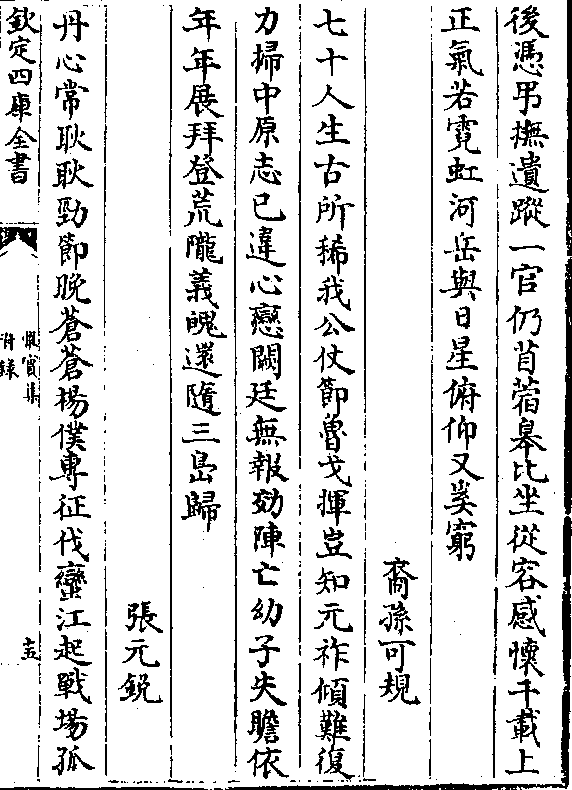 後憑弔撫遺蹤一官仍苜蓿臯比坐從容感懷千載上
正氣若霓虹河岳與日星俯仰又奚窮
裔孫可規
七十人生古所稀我公仗節魯戈揮豈知元祚傾難復
力掃中原志已違心戀闕廷無報効陣亡幼子失瞻依
年年展拜登荒隴義魄還隨三島歸
張元銳
丹心常耿耿勁節晚蒼蒼楊僕専征伐蠻江起戰場孤
欽定四庫全書
附錄